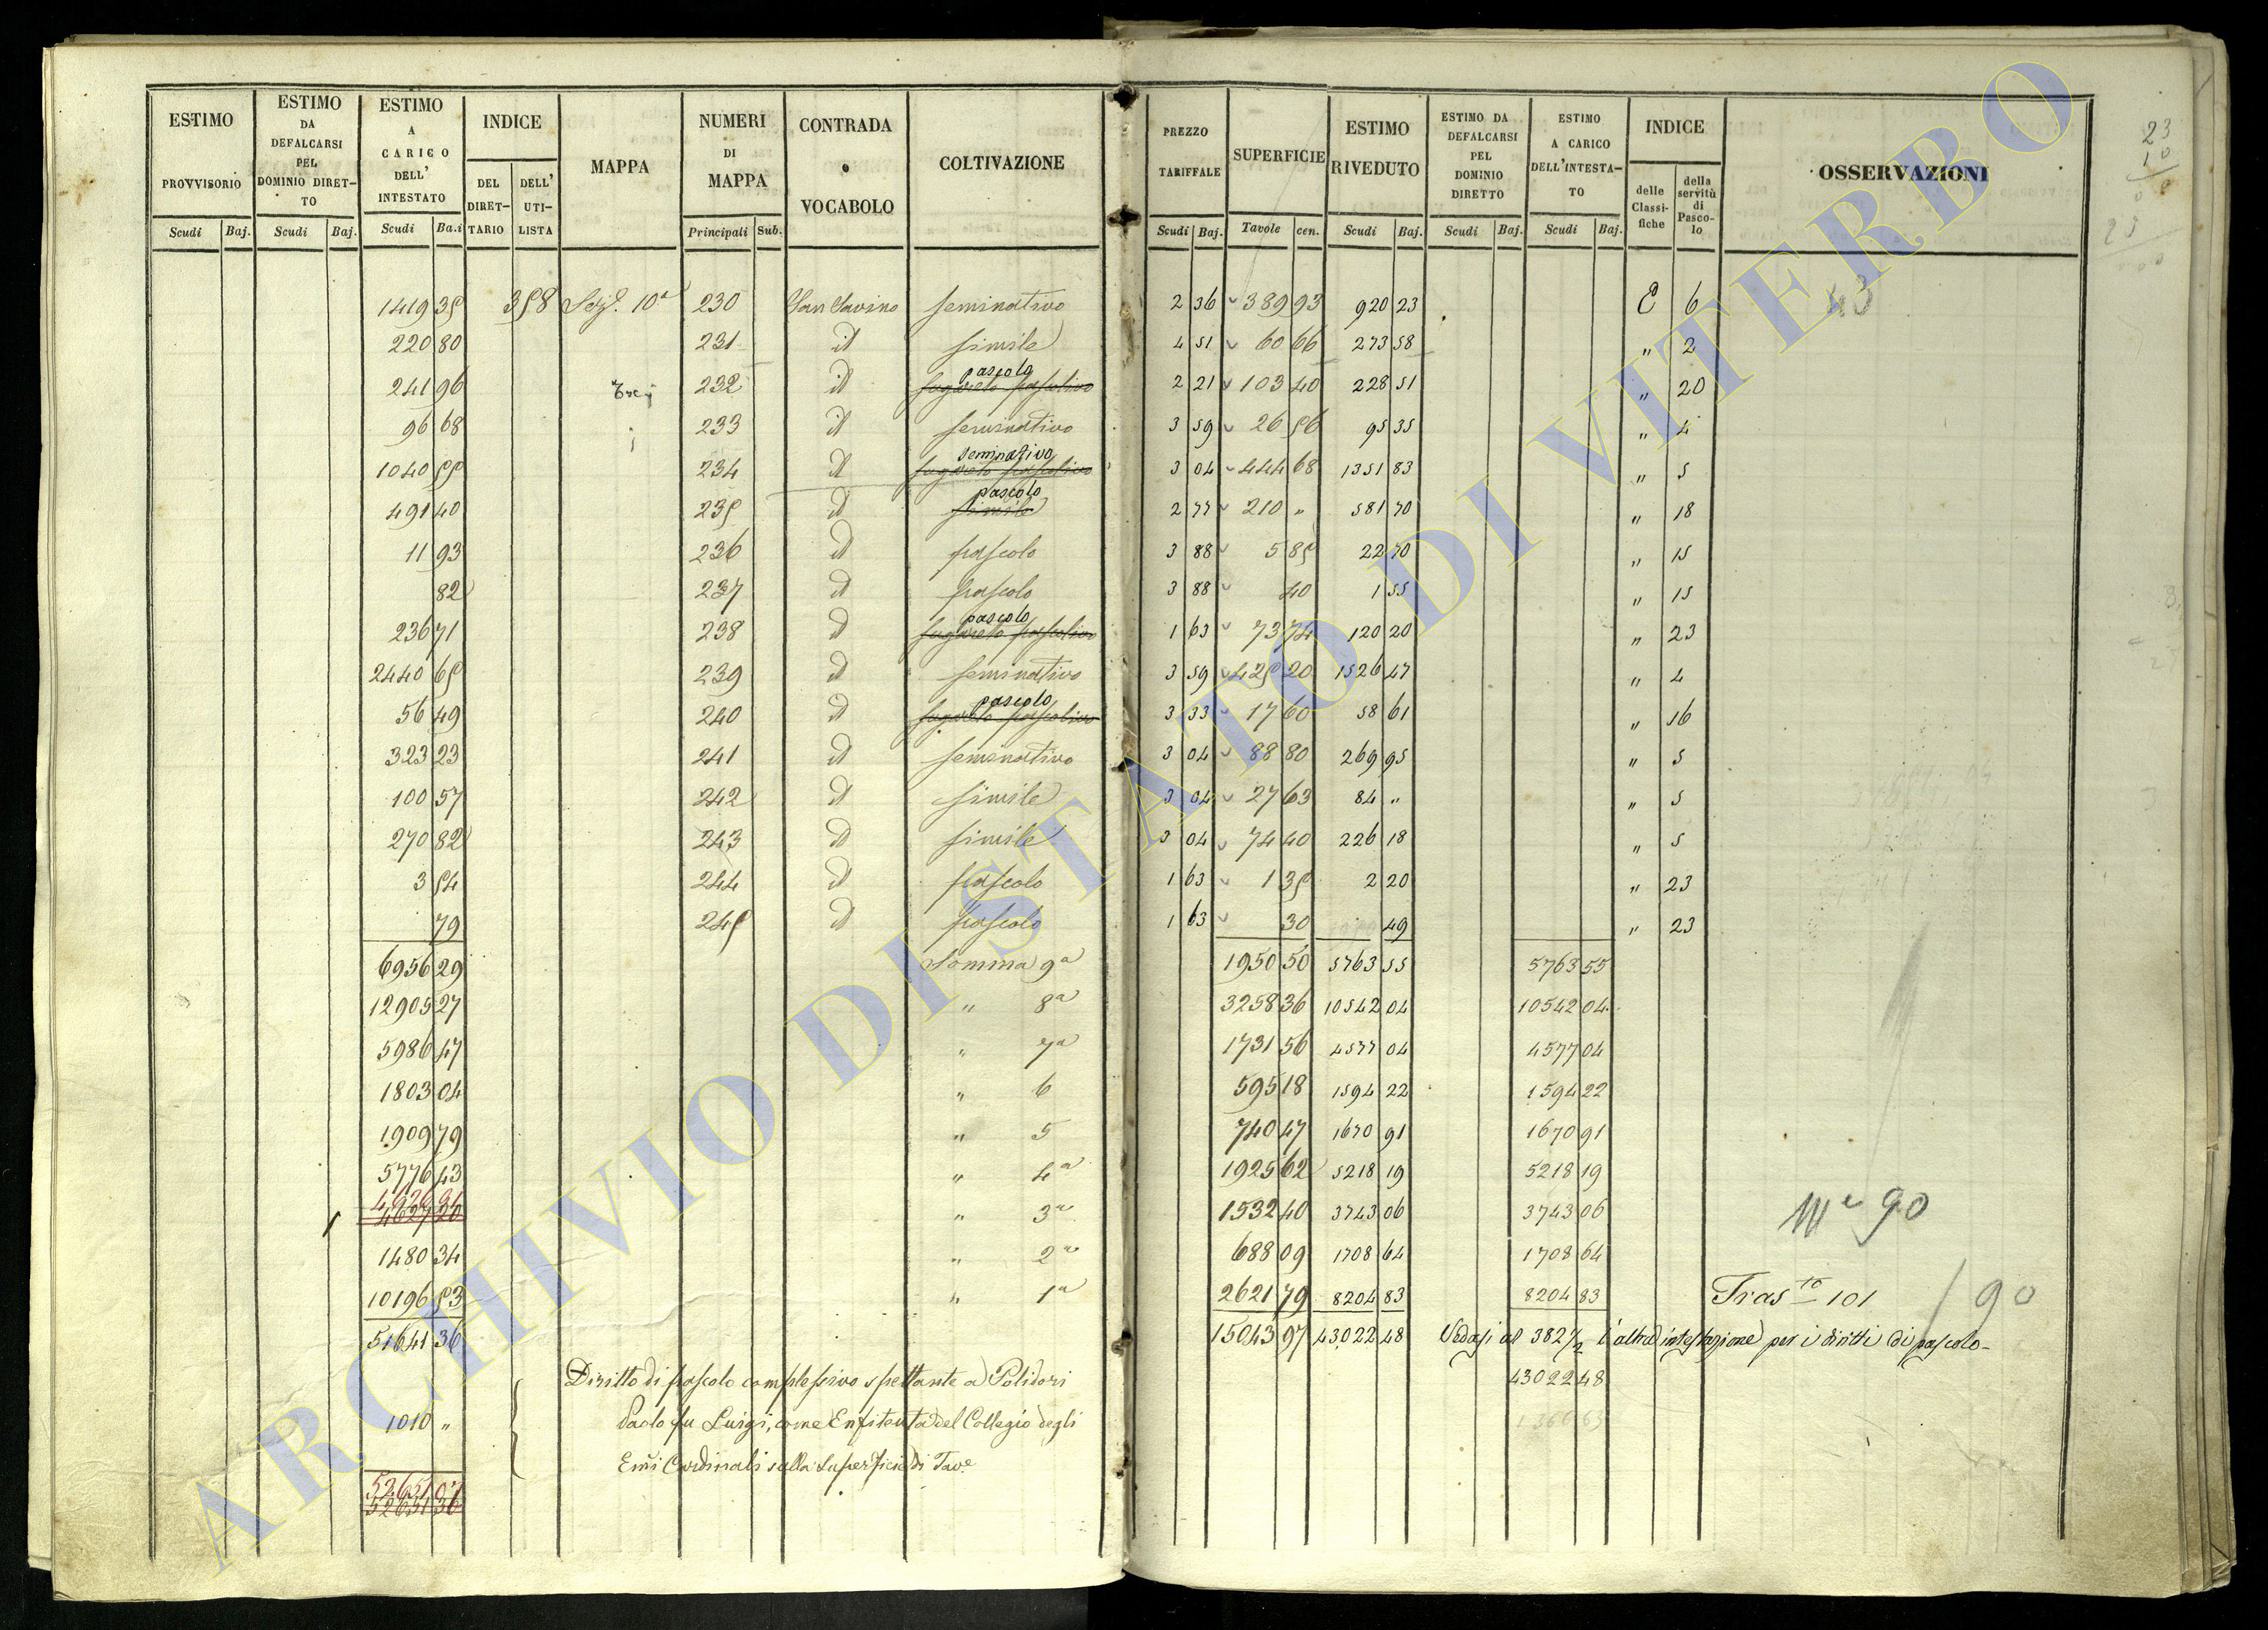 ESTIMO PROVVISORIO Scudi Baj.
ESTIMO DA DEFALCARSI PEL DOMINIO DIRETTO Scudi Baj.
ESTIMO A CARICO DELL' INTESTATO Scudi Ba.i
INDICE DEL DIRETTARIO DELL' UTILISTA
MAPPA
NUMERI DI MAPPA Principali Sub.
CONTRADA o VOCABOLO
COLTIVAZIONE
PREZZO TARIFFALE Scudi Baj.
SUPERFICIE Tavole cen.
ESTIMO RIVEDUTO Scudi Baj.
ESTIMO DA DEFALCARSI PEL DOMINIO DIRETTO Scudi Baj.
ESTIMO A CARICO DELL'INTESTATO Scudi Baj.
INDICE delle Classifiche della servitù di Pascolo
OSSERVAZIONI
1419 35 358 Sez. 10a 230 San Savino seminativo 2 36 389 93 920 23 E 6 43
220 80 231 id simile 4 51 60 66 273 58 " 2
241 96 232 id pascolo 2 21 103 40 228 51 " 20
96 68 233 id seminativo 3 59 26 56 95 35 " 4
1040 55 234 id seminativo 3 04 444 68 1351 83 " 5
491 40 235 id pascolo simile 2 77 210 " 581 70 " 18
11 93 236 id pascolo 3 88 5 85 22 70 " 15
82 237 id pascolo 3 88 40 1 55 " 15
236 71 238 id pascolo 1 63 73 74 120 20 " 23
2440 65 239 id seminativo 3 59 425 20 1526 47 " 4
56 49 240 id pascolo 3 33 17 60 58 61 " 16
323 23 241 id seminativo 3 04 88 80 269 95 " 5
100 57 242 id simile 3 04 27 63 84 " " 5
270 82 243 id simile 3 04 74 40 226 18 " 5
3 54 244 id pascolo 1 63 1 35 2 20 " 23
79 245 id pascolo 1 63 30 49 " 23
6956 29 Somma 9a 1950 50 5763 55 5763 55
12905 27 " 8a 3258 36 10542 04 10542 04
5986 47 " 7a 1731 56 4577 04 4577 04
1803 04 " 6 595 18 1594 22 1594 22
1909 79 " 5 740 47 1670 91 1670 91
5776 43 " 4a 1925 62 5218 19 5218 19
4627 20 " 3a 1532 40 3743 06 3743 06
1480 34 " 2a 688 09 1708 64 1708 64
10196 53 " 1a 2621 79 8204 83 8204 83 Tras.to 101 90
51641 36 15043 97 43022 48 Vedasi al 382 1/2 l'altra intestazione per i diritti di pascolo
Diritto di pascolo complessivo spettante a Polidori 43022 48
1010 " Paolo fu Luigi, come Enfiteuta del Collegio degli
Emi Cardinali sulla superficie di Tav.e
52651 07
52651 36
ARCHIVIO DI STATO DI VITERBO